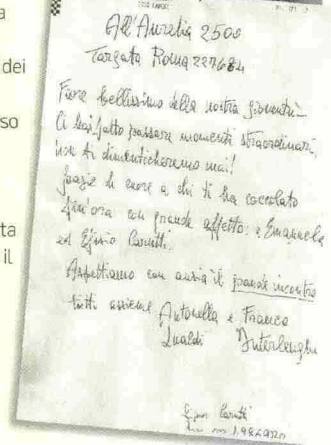 a
dei
so
ta
il
All'Aurelia 2500
Targata Roma 227684
Fiore bellissimo della nostra gioventù-
Ci hai fatto passare momenti straordinari,
non ti dimenticheremo mai!
Grazie di cuore a chi ti ha coccolato
fin'ora con grande affetto: a Emanuela
ed Efisio Carutti.
Aspettiamo con ansia il grande incontro
tutti assieme Antonella e Franco
Lualdi Interlenghi